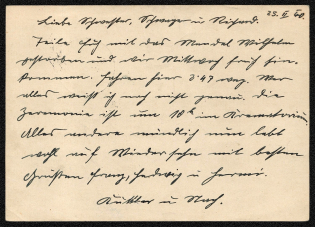 23. II. 60.
Liebe Schwester, Schwager u. Richard.
Teile Euch mit das Mendel Wilhelm
gestorben und wir Mittwoch früh hin-
kommen. Fahren hier 3'47 weg. Wer
alles weiß ich noch nicht genau. Die
Zeremonie ist um 10 h im Krematorium.
Alles andere mündlich nun lebt
wohl auf Wiedersehn mit besten
Grüssen Franz, Hedwig u. Hermi.
u.